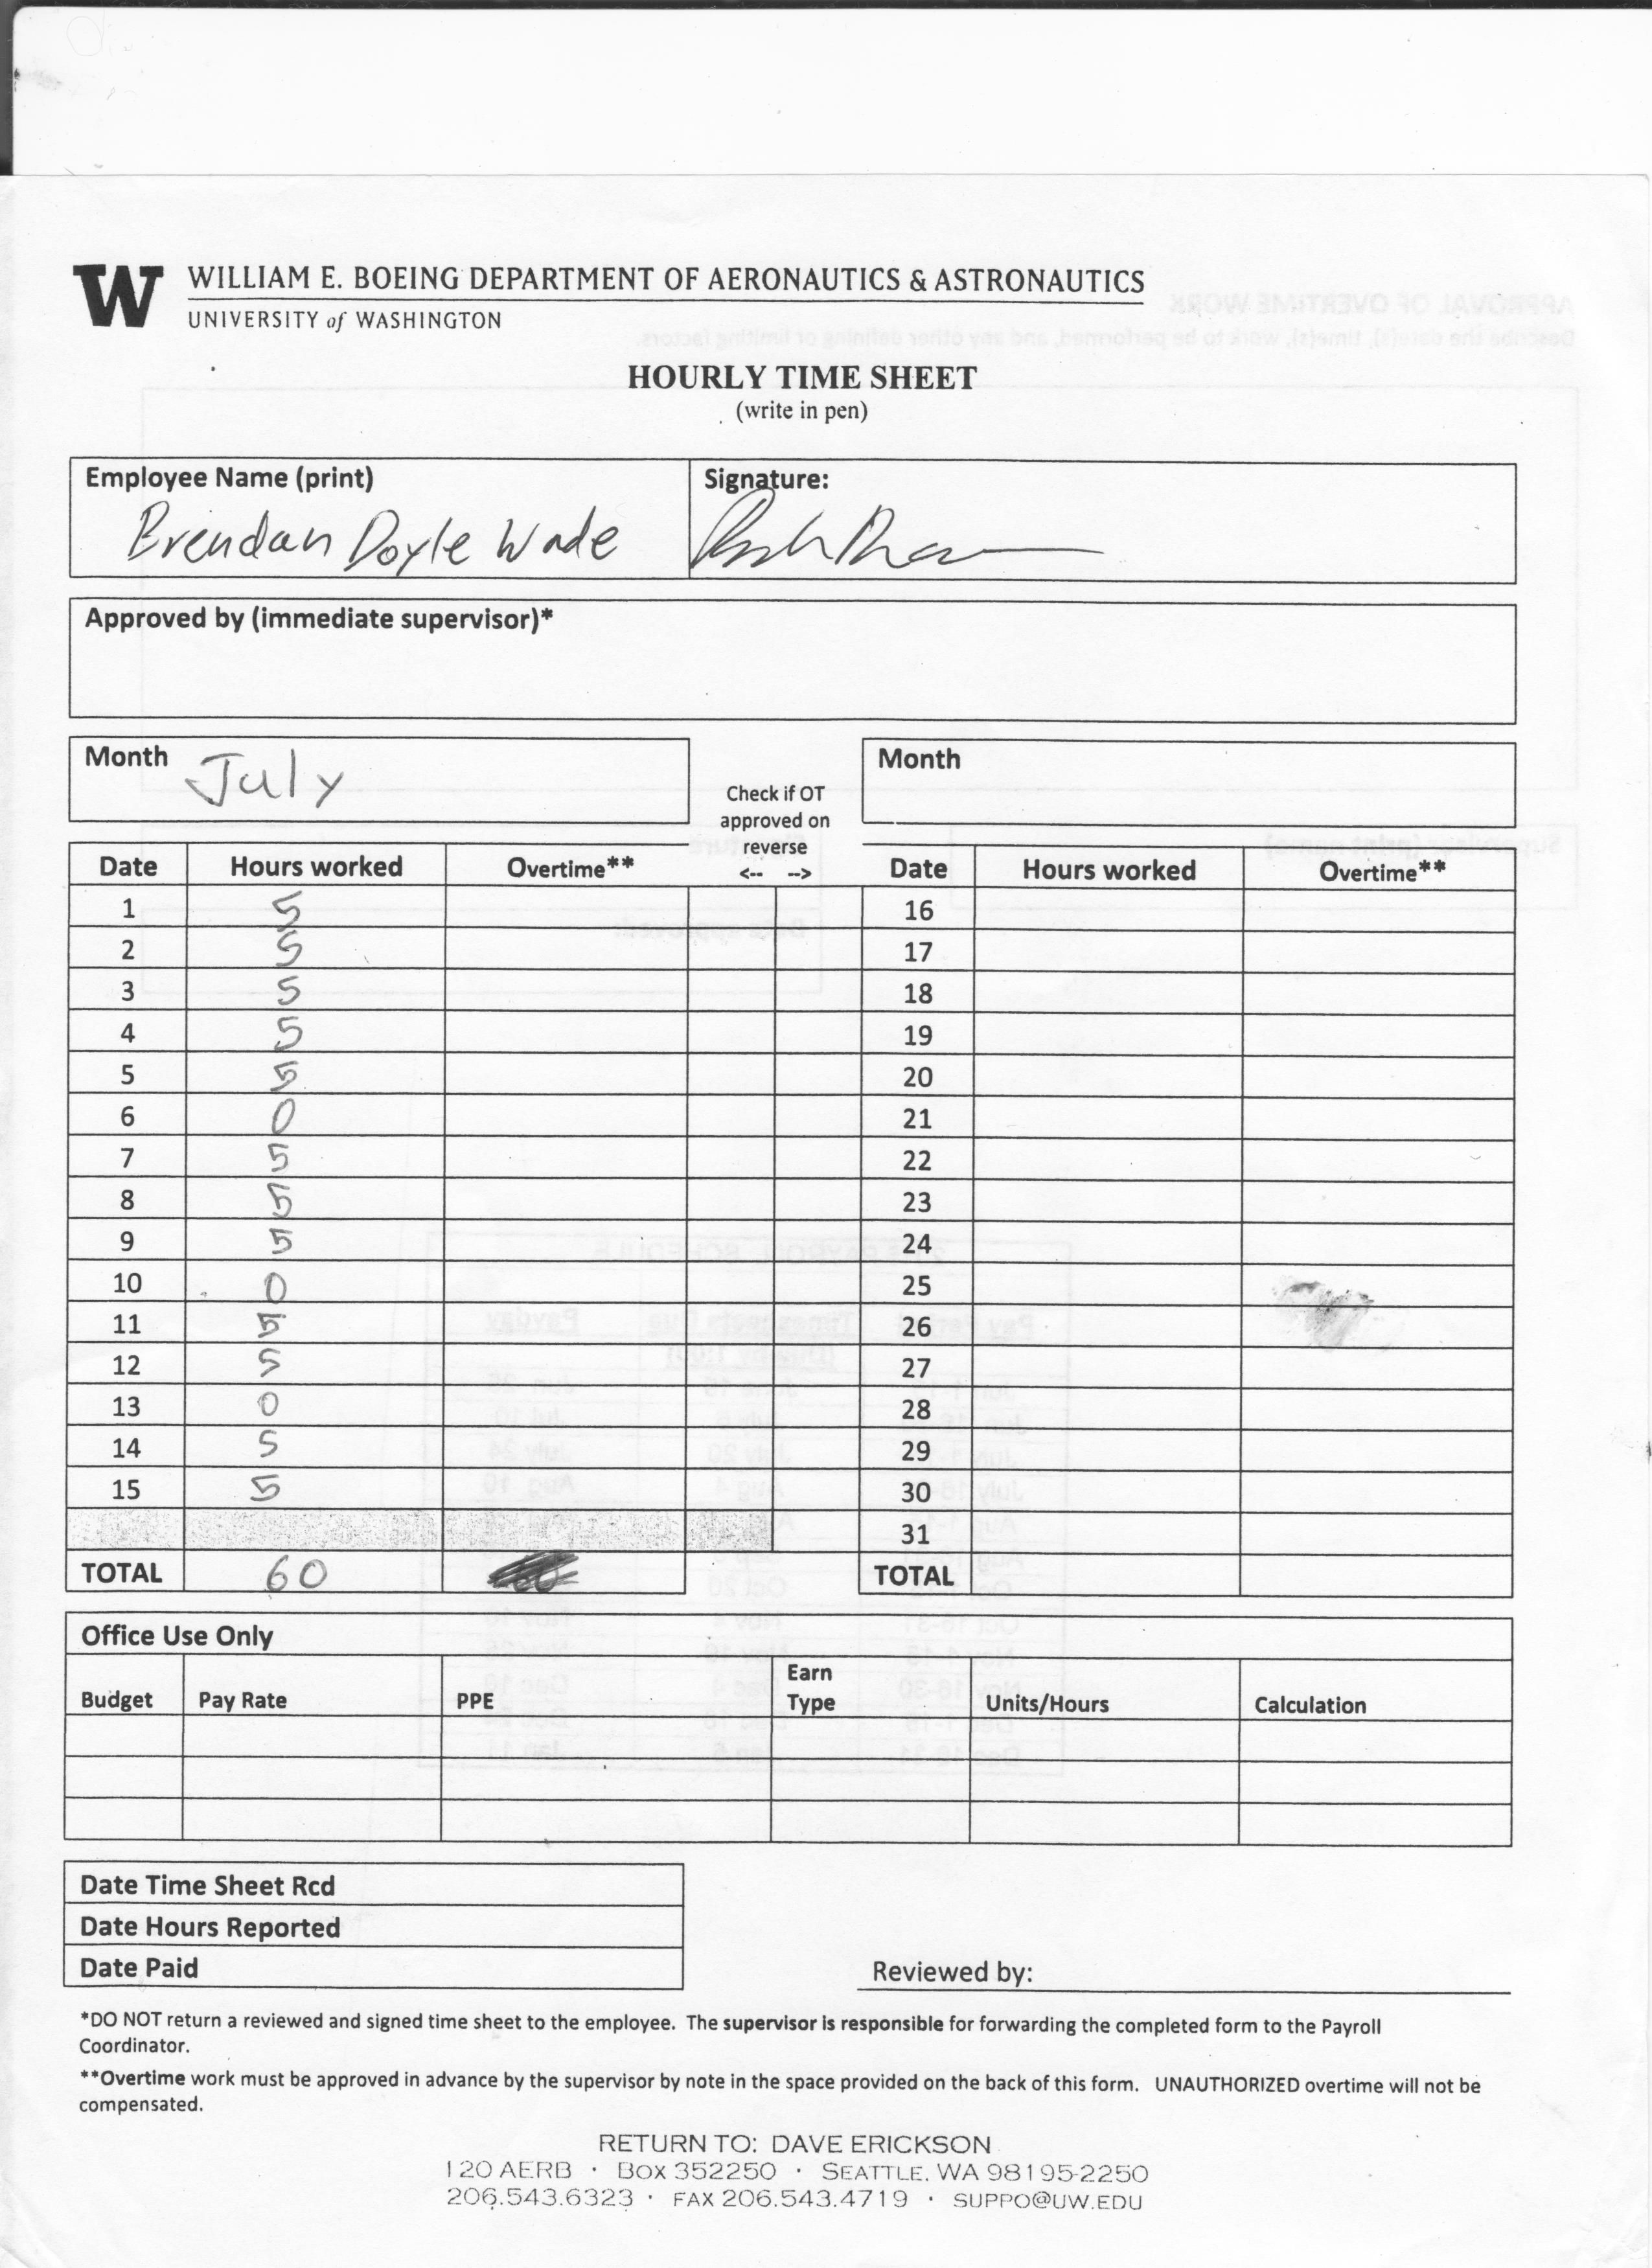 W WILLIAM E. BOEING DEPARTMENT OF AERONAUTICS & ASTRONAUTICS
UNIVERSITY of WASHINGTON
HOURLY TIME SHEET
(write in pen)
Employee Name (print) Signature:
Brendan Doyle Wade
Approved by (immediate supervisor)*
Month July Month
Check if OT
approved on
reverse
Date Hours worked Overtime** <-- --> Date Hours worked Overtime**
1 5 16
2 5 17
3 5 18
4 5 19
5 5 20
6 0 21
7 5 22
8 5 23
9 5 24
10 0 25
11 5 26
12 5 27
13 0 28
14 5 29
15 5 30
31
TOTAL 60 TOTAL
Office Use Only
Budget Pay Rate PPE Earn Type Units/Hours Calculation
Date Time Sheet Rcd
Date Hours Reported
Date Paid Reviewed by:
*DO NOT return a reviewed and signed time sheet to the employee. The supervisor is responsible for forwarding the completed form to the Payroll
Coordinator.
**Overtime work must be approved in advance by the supervisor by note in the space provided on the back of this form. UNAUTHORIZED overtime will not be
compensated.
RETURN TO: DAVE ERICKSON
120 AERB · BOX 352250 · SEATTLE, WA 98195-2250
206.543.6323 · FAX 206.543.4719 · SUPPO@UW.EDU